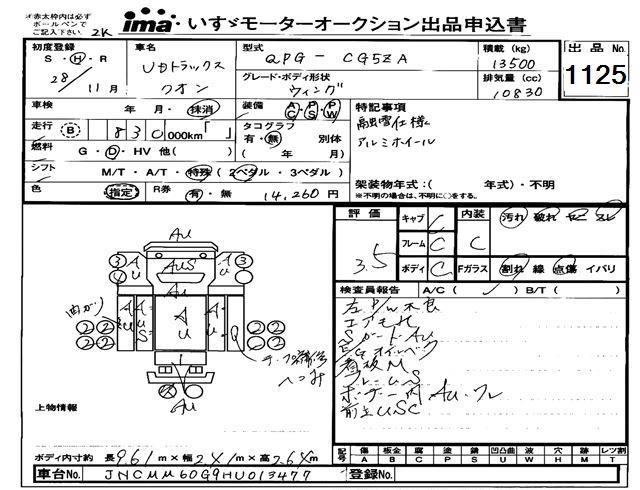 ※赤太枠内は必ず
ボールペンで
ご記入下さい
2K
ima いすゞモーターオークション出品申込書
初度登録 S・H・R 28/11月
車名 UDトラックス クオン
型式 QPG - CG5ZA
グレード・ボディ形状 ウィング
積載 (kg) 13500
排気量 (cc) 10830
出品 No. 1125
車検 年・月・抹消
装備 AC・PS・PW
特記事項
融雪仕様
アルミホイール
走行 B 830,000km「 」
タコグラフ 有・無 別体 ( 年 月)
燃料 G・D・HV 他( )
シフト M/T・A/T・特殊 (2ペダル・3ペダル)
架装物年式:( 年式)・不明
※不明の場合は、不明に○をする。
色 指定 R券 有・無 14,260円
評価 3.5
キャブ C
内装 C
汚れ 破れ コゲ スレ
フレーム C
ボディ C
Fガラス 割れ 線 点傷 イバリ
検査員報告 A/C( ✓ ) B/T( )
左P/W不良
エアモレ
SガードAU
Egオイルベタ
看板M
フレームUS
ボデー内AU・フレ
前主USC
AU
3 AU 3
4 AUS
AU
曲がり
AUS AU AU
2 2 2 2
2 2 2 2
AU
へこみ
上物情報
ボディ内寸約 長9.61m×幅2.41m×高2.64m
記号 傷 A 板金 B 腐 C 塗 P 錆 S 凹凸曲 U 波 W 穴 H 跡 M レツ割 T
車台No. JNCMM60G9HU013477 登録No.